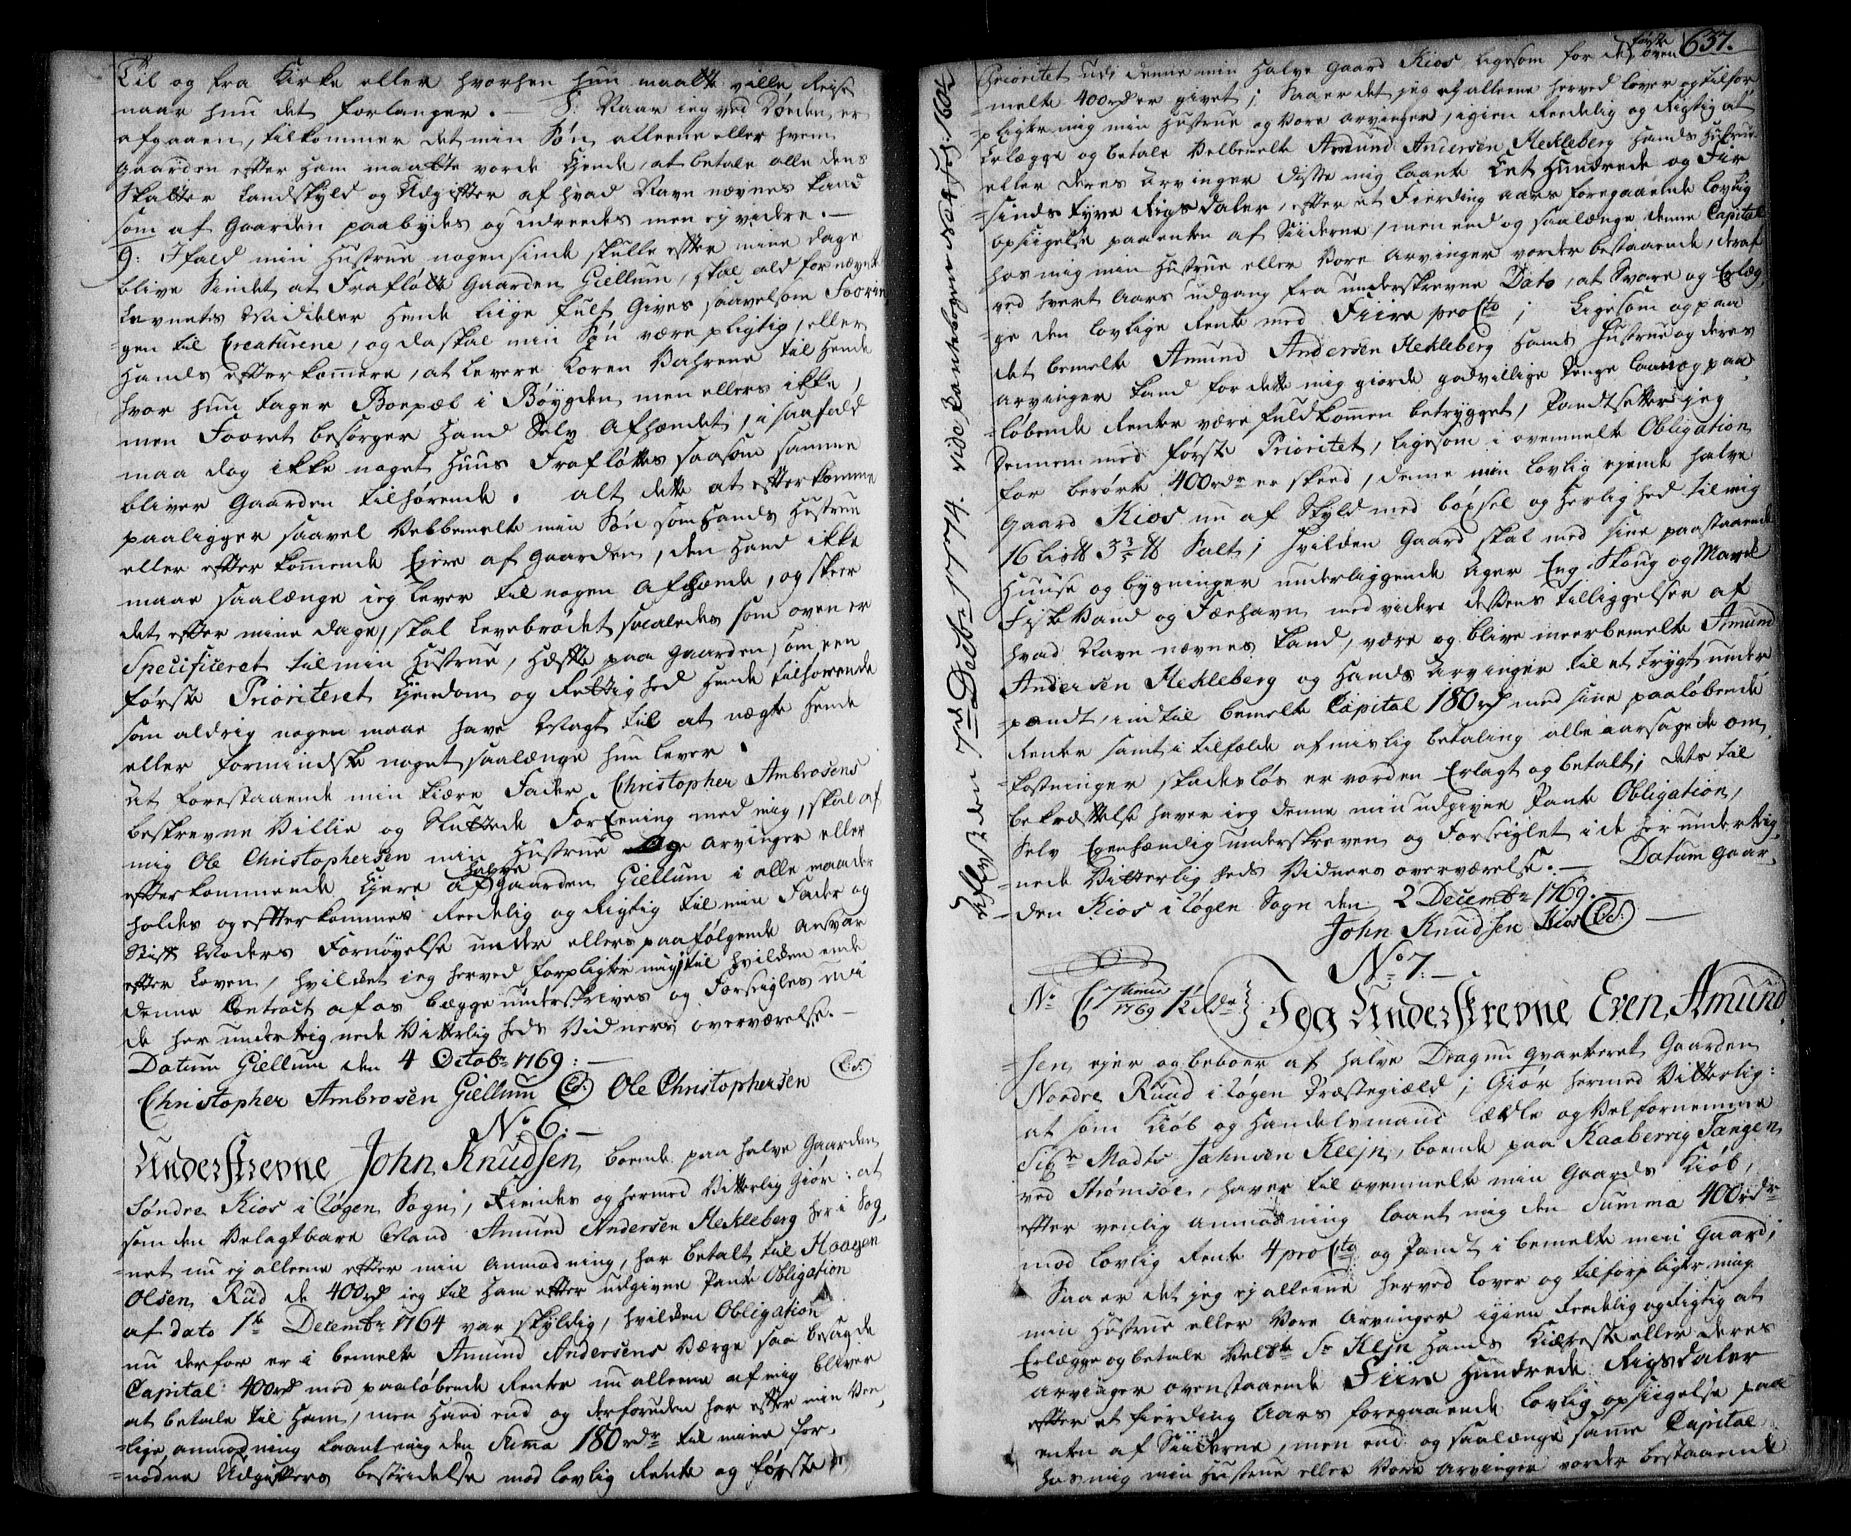 Til og fra Kirke eller hvorhen hun maatte ville Reise
naar hun det forlanger. — 8: Naar ieg ved Døden er
afgaaen, tilkommer det min Søn alleene eller hvem
gaarden efter ham maatte vorde Ejende, at betale alle dens
Skatter Landskyld og Udgifter af hvad Navn nævnes kand
som af Gaarden paabydes og udreedes men ej videre. —
9: Ifald min Hustrue nogensinde skulle efter mine dage
blive Sindet at Frafløtte Gaarden Giellum, skal ald fornævnte
Levnets Middeler hende liige fult Gives saavelsom Foorin-
gen til Creaturene, og da skal min Søn være pligtig, eller
Hands efterkomere, at levere Koren Vahrene til hende
hvor hun tager Boepæl i Bøygden men ellers ikke,
men Fooret besørger Hand Selv Afhændet, i saafald
maa dog ikke noget Huus Frafløttes saasom samme
bliver Gaarden tilhørende. alt dette at efterkomme
paaligger saavel Velbemelte min Søn som Hands Hustrue
eller efterkomende Ejere af gaarden, den Hand ikke
maae saalænge ieg lever til nogen Afhænde, og skeer
det efter mine dage, skal Levebrødet saaledes som oven er
Specificeret til min Hustrue, hæfte paa gaarden, som een
første Prioriteret Ejendom og Rettighed hende tilhørende
som aldrig nogen maae have Magt til at nægte hende
eller formindske noget saalænge hun lever.
At forestaaende min kiære Fader Christopher Ambrosens
beskrevne Villie og Sluttede ForEening med mig, skal af
mig Ole Christophersen min Hustrue og arvinger eller
efterkommende Ejere af halve gaarden Giellum i alle maader
holdes og efterkommes Reedelig og Rigtig til min Fader og
Moders Fornøyelse under ellers paafølgende ansvar
efter Loven, hvildet ieg herved forpligter mig til hvilden ende
denne Contract af os begge underskrives og Forseigles i
de her undertegnede Vitterligheds Vidners overværelse. —
Datum Giellum den 4 Octobr 1769: —
Christopher Ambrosen Giellum (LS) Ole Christophersen (LS)
No 6: —
Underskrevne John Knudsen boende paa halve Gaarden
Søndre Kios i Løgen Sogn, Kiendes og hermed Vitterlig Giør: at
som den Velagtbare Mand Amund Andersen Hekleberg her i Sog-
net nu ej alleene efter min Anmodning, har betalt til Haagen
Olsen Rud de 400rd ieg til ham efter udgivne Pante Obligation
af dato 1te Decembr 1764 var skyldig, hvilden Obligation
nu derfor er i bemelte Amund Andersens Værge saa besagde
Capital 400rd med paaløbende Renter nu alleene af mig bliver
at betale til Ham, men Hand end og derforuden har efter min Ven-
lige anmodning laant mig den Suma 180rdr til mine for-
nødne Udgifters bestridelse mod lovlig Rente og første
637.
Prioritet udi denne min halve gaard Kios ligesom for de første oven
melte 400rd er givet; Saa er det jeg ej alleene herved lover og tilfor-
pligter mig min Hustrue og Vore arvinger, igien Reedelig og Rigtig at
Erlægge og betale Velbemelte Amund Andersen Hekleberg Hands Hustrue
eller deres Arvinger disse mig laante Eet Hundrede og Fir-
sinds tyve Rigsdaler, efter et Fierding aars foregaaende lovlig
opsigelse paa enten af Siiderne, men end og saalænge denne Capital
hos mig min Hustrue eller Vore Arvinger vorder bestaaende, deraf
ved hvert Aars udgang fra underskrevne Dato, at Svare og Erlæg-
ge den lovlige Rente med Fiire pro Cto; ligesom og paa
det bemelte Amund Andersen Hekleberg Hands Hustrue og deres
arvinger kand for dette mig giorde godvillige Penge laan og paa-
løbende Renter være fuldkomen betrygget, Pandtsetter jeg
dennem med første Prioritet, ligesom i ovenmelte Obligation
for berørte 400rdr er skeed, denne min lovlig ejende halve
gaard Kios nu af Skyld med bøxsel og Herlighed tilmig
16 Lis℔ 3 3/5 ℔ Salt; Hvilden Gaard skal med sine paastaaende
Huuse og bygninger underliggende Ager Eng Skoug og Mark
Fiskevand og Fæehavn med videre dessens tilliggelser af
hvad Navn nævnes kand, være og blive meerbemelte Amund
Andersen Hekleberg og Hands Arvinger til et trygt under-
pandt, indtil bemelte Capital 180rd med sine paaløbende
Renter samt i tilfælde af mislig betaling alle aarsagede om-
kostninger skadesløs er vorden Erlagt og betalt; Dets til
bekræftelse haver ieg denne min udgivne Pante Obligation,
Selv Egenhændig underskreven og Forseiglet i de her underteg-
nede Vitterligheds Vidners overværelse. — Datum gaar-
den Kios i Løgen Sogn den 2 Decembr 1769. —
John Knudsen Kios (LS) —
Aflyst den 7de Decbr 1774. vide Pantebogen No 4 Fol: 160
No 7. —
1769 1½
Jeg Underskrevne Even Amund-
sen ejer og beboer af halve Dragnu qvarteret Gaarden
Nordre Ruud i Løgen Præstegiæld, Giør hermed Vitterlig:
at som Kiøb og Handelsmand ædle og Velfornemme
Sigr Madts Jahnsen Klejn, boende paa Kaaberrig Tangen
ved Strømsøe, haver til ovenmelte min Gaards Kiøb,
efter venlig anmodning laant mig den Summa 400rdr
mod lovlig Rente 4 pro Cto og Pandt i bemelte min Gaard;
Saa er det jeg ej alleene herved lover og tilforpligter mig
min Hustrue eller Vore Arvinger igien Reedelig og Rigtig at
Erlægge og betale Velbte Sr Klejn Hands Kiæreste eller deres
arvinger ovenstaaende Fiire Hundrede Rigsdaler
efter et fierding Aars foregaaende lovlig opsigelse paa
enten af Siiderne, men end og saalænge same Capital
hos mig min Hustrue eller Vore Arvinger vorder bestaaende